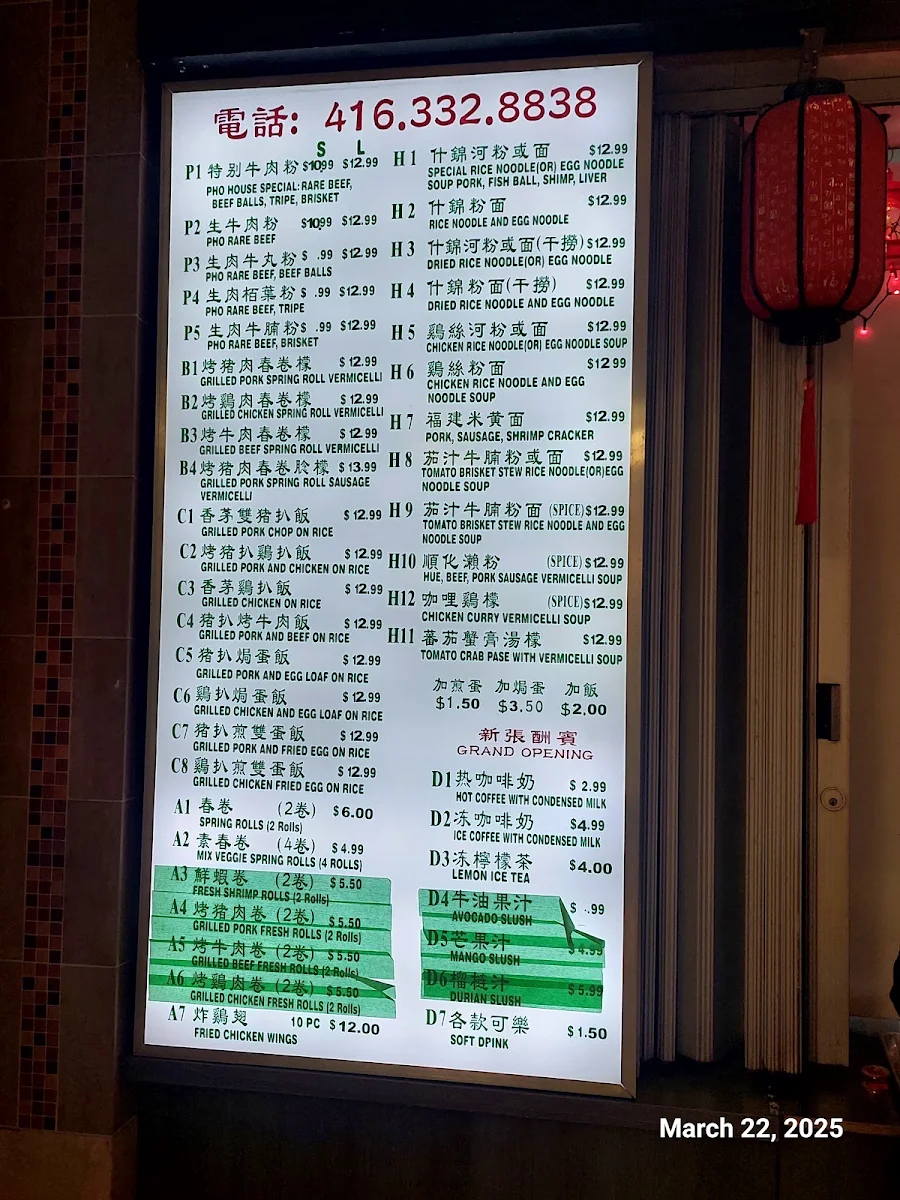 電話: 416.332.8838
S L
P1 特别牛肉粉 $10.99 $12.99
PHO HOUSE SPECIAL: RARE BEEF,
BEEF BALLS, TRIPE, BRISKET
P2 生牛肉粉 $10.99 $12.99
PHO RARE BEEF
P3 生肉牛丸粉 $ .99 $12.99
PHO RARE BEEF, BEEF BALLS
P4 生肉栢葉粉 $ .99 $12.99
PHO RARE BEEF, TRIPE
P5 生肉牛腩粉 $ .99 $12.99
PHO RARE BEEF, BRISKET
B1 烤猪肉春卷檬 $12.99
GRILLED PORK SPRING ROLL VERMICELLI
B2 烤鷄肉春卷檬 $12.99
GRILLED CHICKEN SPRING ROLL VERMICELLI
B3 烤牛肉春卷檬 $12.99
GRILLED BEEF SPRING ROLL VERMICELLI
B4 烤猪肉春卷脍檬 $13.99
GRILLED PORK SPRING ROLL SAUSAGE
VERMICELLI
C1 香茅雙猪扒飯 $12.99
GRILLED PORK CHOP ON RICE
C2 烤猪扒鷄扒飯 $12.99
GRILLED PORK AND CHICKEN ON RICE
C3 香茅鷄扒飯 $12.99
GRILLED CHICKEN ON RICE
C4 猪扒烤牛肉飯 $12.99
GRILLED PORK AND BEEF ON RICE
C5 猪扒焗蛋飯 $12.99
GRILLED PORK AND EGG LOAF ON RICE
C6 鷄扒焗蛋飯 $12.99
GRILLED CHICKEN AND EGG LOAF ON RICE
C7 猪扒煎雙蛋飯 $12.99
GRILLED PORK AND FRIED EGG ON RICE
C8 鷄扒煎雙蛋飯 $12.99
GRILLED CHICKEN FRIED EGG ON RICE
A1 春卷 (2卷) $6.00
SPRING ROLLS (2 Rolls)
A2 素春卷 (4卷) $4.99
MIX VEGGIE SPRING ROLLS (4 ROLLS)
A3 鮮蝦卷 (2卷) $5.50
FRESH SHRIMP ROLLS (2 Rolls)
A4 烤猪肉卷 (2卷) $5.50
GRILLED PORK FRESH ROLLS (2 Rolls)
A5 烤牛肉卷 (2卷) $5.50
GRILLED BEEF FRESH ROLLS (2 Rolls)
A6 烤鷄肉卷 (2卷) $5.50
GRILLED CHICKEN FRESH ROLLS (2 Rolls)
A7 炸鷄翅 10 PC $12.00
FRIED CHICKEN WINGS
H1 什錦河粉或面 $12.99
SPECIAL RICE NOODLE(OR) EGG NOODLE
SOUP PORK, FISH BALL, SHIMP, LIVER
H2 什錦粉面 $12.99
RICE NOODLE AND EGG NOODLE
H3 什錦河粉或面(干撈) $12.99
DRIED RICE NOODLE(OR) EGG NOODLE
H4 什錦粉面(干撈) $12.99
DRIED RICE NOODLE AND EGG NOODLE
H5 鷄絲河粉或面 $12.99
CHICKEN RICE NOODLE(OR) EGG NOODLE SOUP
H6 鷄絲粉面 $12.99
CHICKEN RICE NOODLE AND EGG
NOODLE SOUP
H7 福建米黄面 $12.99
PORK, SAUSAGE, SHRIMP CRACKER
H8 茄汁牛腩粉或面 $12.99
TOMATO BRISKET STEW RICE NOODLE(OR)EGG
NOODLE SOUP
H9 茄汁牛腩粉面 (SPICE) $12.99
TOMATO BRISKET STEW RICE NOODLE AND EGG
NOODLE SOUP
H10 順化瀨粉 (SPICE) $12.99
HUE, BEEF, PORK SAUSAGE VERMICELLI SOUP
H12 咖哩鷄檬 (SPICE) $12.99
CHICKEN CURRY VERMICELLI SOUP
H11 蕃茄蟹膏湯檬 $12.99
TOMATO CRAB PASE WITH VERMICELLI SOUP
加煎蛋 加焗蛋 加飯
$1.50 $3.50 $2.00
新張酬賓
GRAND OPENING
D1 热咖啡奶 $2.99
HOT COFFEE WITH CONDENSED MILK
D2 冻咖啡奶 $4.99
ICE COFFEE WITH CONDENSED MILK
D3 冻檸檬茶 $4.00
LEMON ICE TEA
D4 牛油果汁 $ .99
AVOCADO SLUSH
D5 芒果汁 $4.99
MANGO SLUSH
D6 榴梿汁 $5.99
DURIAN SLUSH
D7 各款可樂 $1.50
SOFT DPINK
March 22, 2025